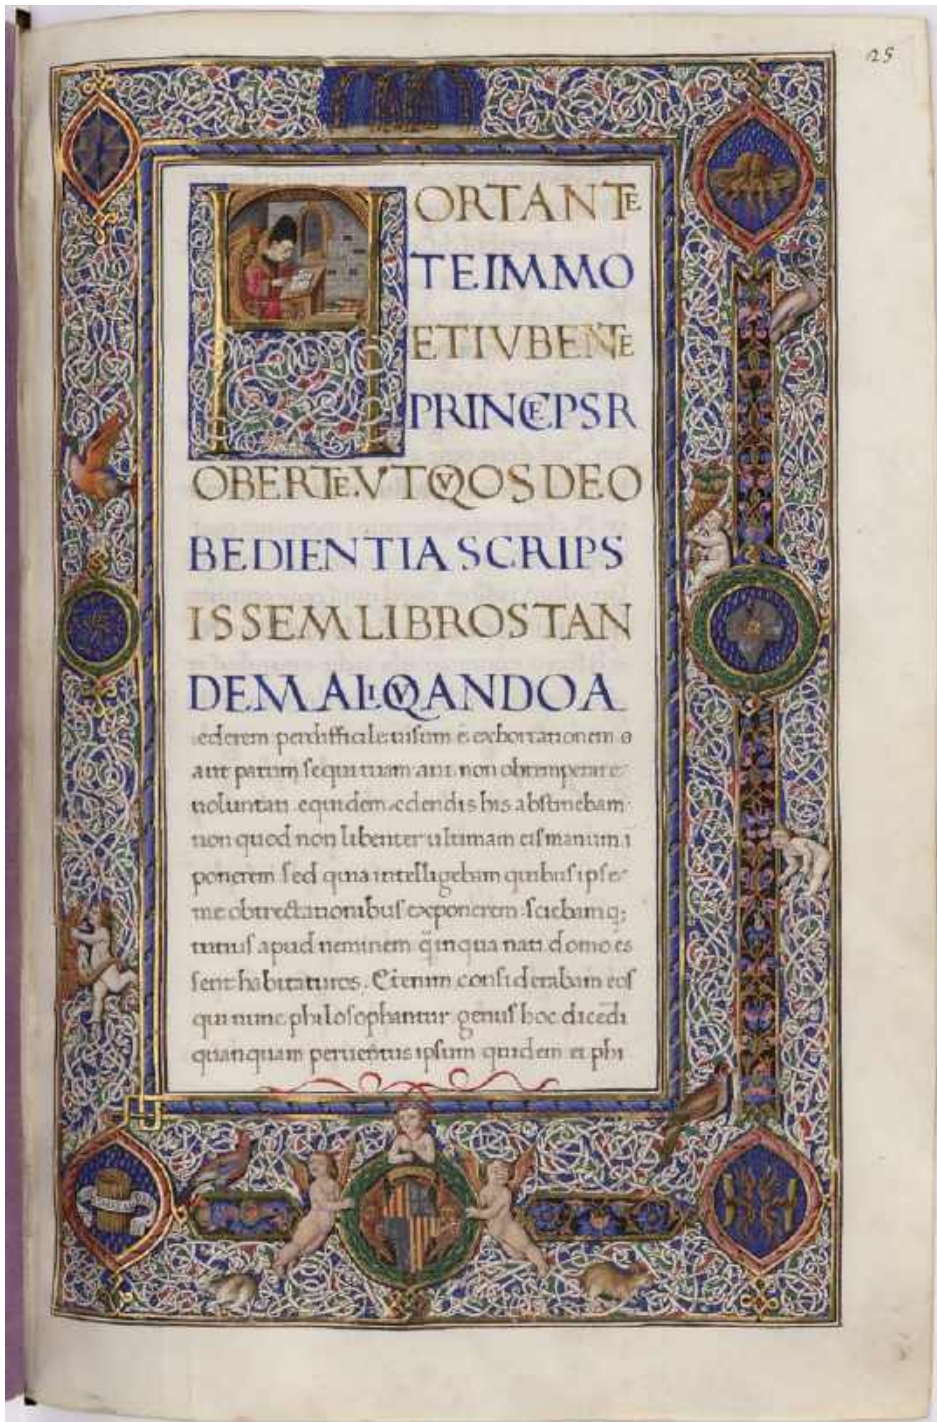 25
HORTANTE
TE IMMO
ET IVBENTE
PRINCEPS R
OBERTE. VT QVOS DE O
BEDIENTIA SCRIPS
ISSEM LIBROS TAN
DEM ALIQVANDO A
ederem perdifficile uisum ē exhortationem
aut patrum sequi tuam aut non obtemperare
uoluntati equidem edendis his abstinebam
non quod non libenter ultimam eis manum ī
ponerem sed quia intelligebam quibus ipse
me obtrectationibus exponerem sciebamq;
tutius apud neminem q̄ in qua nati domo es
sent habitaturos. Eterum considerabam eos
qui nunc philosophantur genus hoc dicēdi
quanquam peruetus ipsum quidem et phi